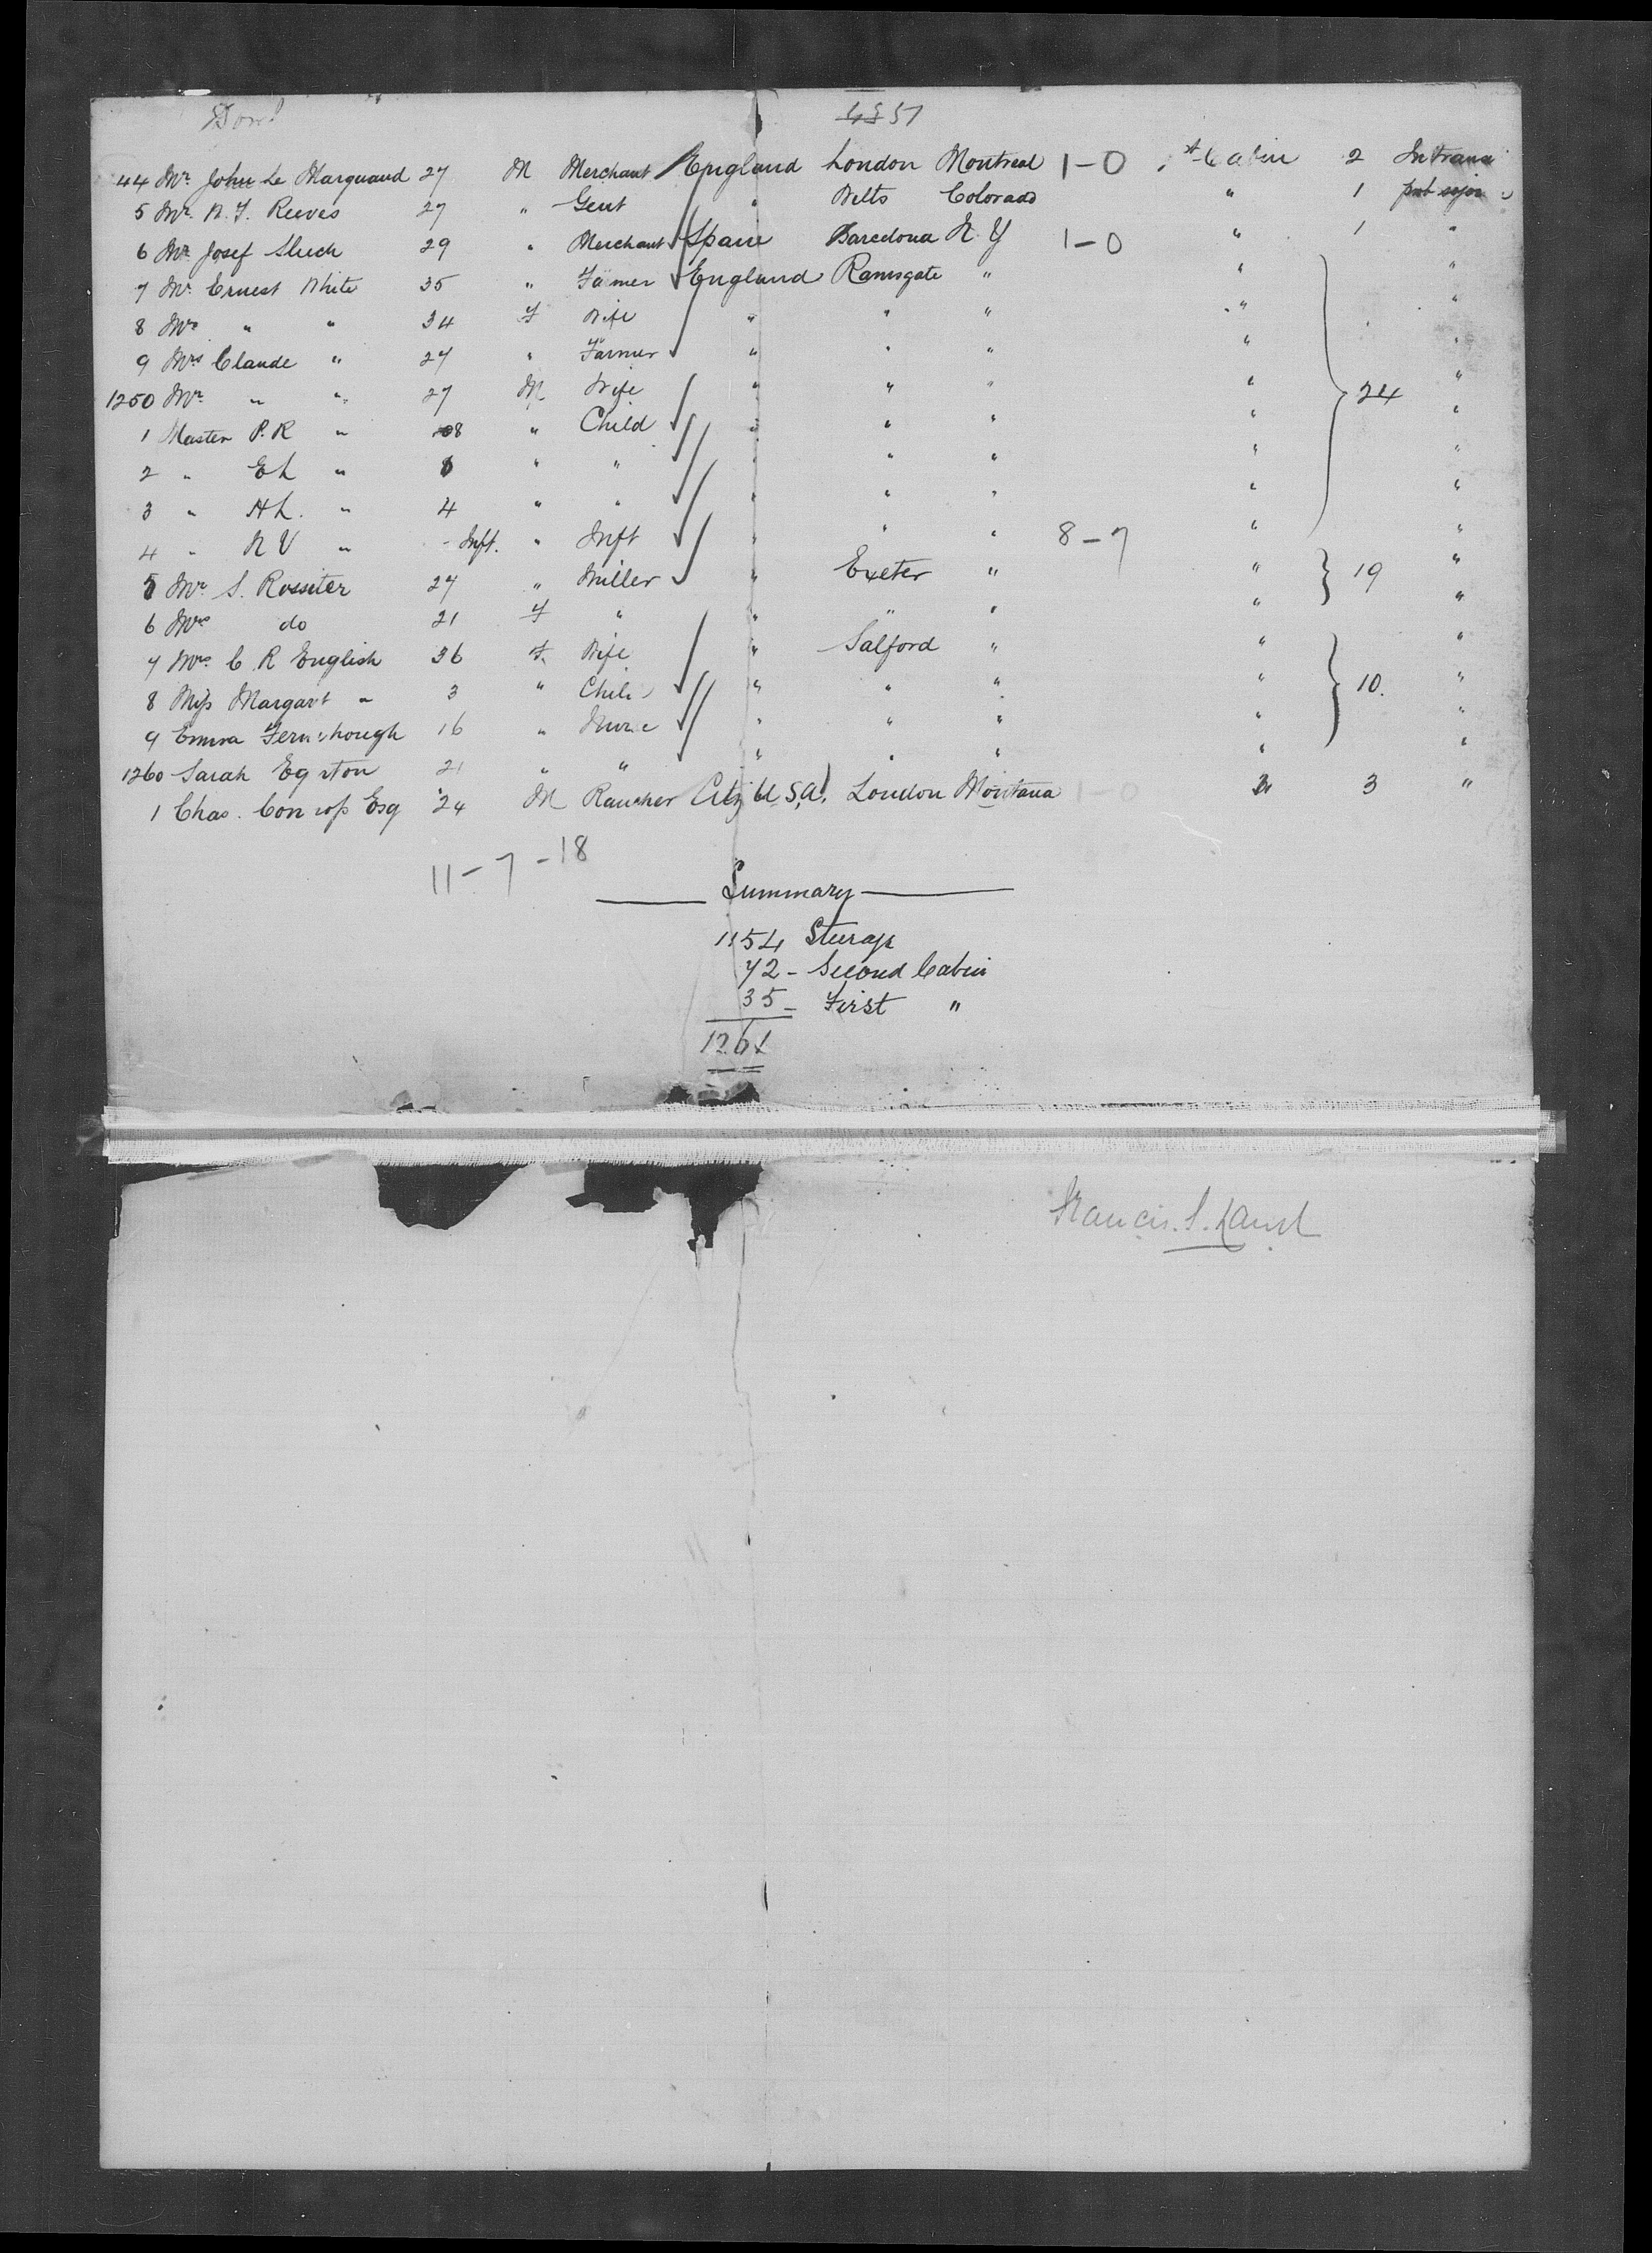 4351
44 Mr. John Le Marquand 27 M Merchant England London Montreal 1-0 Cabin 2 In Trans
5 Mr. N. F. Reeves 27 " Gent " Wilts Colorado " 1
6 Mr. Josef 29 " Merchant Spain Barcelona N. Y 1-0 " 1 "
7 Mr. Ernest White 35 " Farmer England Ramsgate " " "
8 Mrs " " 34 F Wife " " " " "
9 Mrs Claude " 27 " Farmer " " " " "
1250 Mr. " " 27 M Wife " " " " 24 "
1 Master P. R " 8 " Child " " " " "
2 " E L " " " " " " " "
3 " H L. " 4 " " " " " " "
4 " N V " Inft. " Inft " " " 8-7 " "
5 Mr. S. Rossiter 27 " Miller " Exeter " " 19 "
6 Mrs do 21 F " " " " " "
7 Mrs. C. R English 36 F. Wife " Salford " " "
8 Miss Margart " 3 " Child " " " " 10. "
9 Emma 16 " Nurse " " " " "
1260 Sarah Egrton 21 " " " " " " "
1 Chas. Esq 24 M Rancher U.S.A. London Montana 1-0 " 3 "
11-7-18
Summary
1154 Steerage
72 - Second Cabin
35 - First "
1261
Francis. S. Land